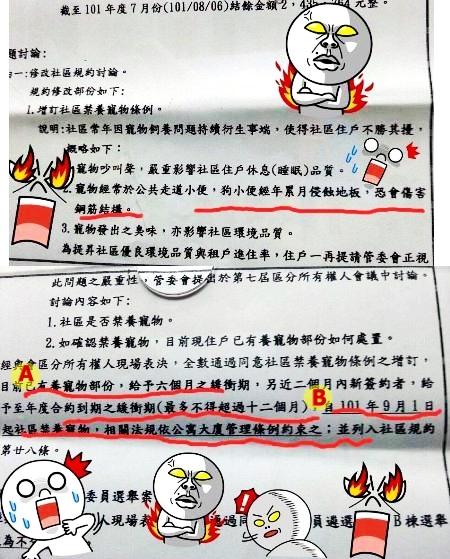 截至101年度7月份(101/08/06)結餘金額2,435,264元整。
題討論:
由一:修改社區規約討論。
規約修改部份如下:
1.增訂社區禁養寵物條例。
說明:社區常年因寵物飼養問題持續衍生事端,使得社區住戶不勝其擾,
概略如下:
寵物吵叫聲,嚴重影響社區住戶休息(睡眠)品質。
寵物經常於公共走道小便,狗小便經年累月侵蝕地板,恐會傷害
鋼筋結構。
3.寵物發出之臭味,亦影響社區環境品質。
為提昇社區優良環境品質與租戶進住率,住戶一再提請管委會正視
此問題之嚴重性,管委會提出於第七屆區分所有權人會議中討論。
討論內容如下:
1.社區是否禁養寵物。
2.如確認禁養寵物,目前現住戶已有養寵物部份如何處置。
經與會區分所有權人現場表決,全數通過同意社區禁養寵物條例之增訂,
A
目前已有養寵物部份,給予六個月之緩衝期,另近二個月內新簽約者,給
B
予至年度合約到期之緩衝期(最多不得超過十二個月),自101年9月1日
起社區禁養寵物,相關法規依公寓大廈管理條例約束之;並列入社區規約
第廿八條。
委員選舉案
人現場表 過同 員遴選 B棟選舉
為不